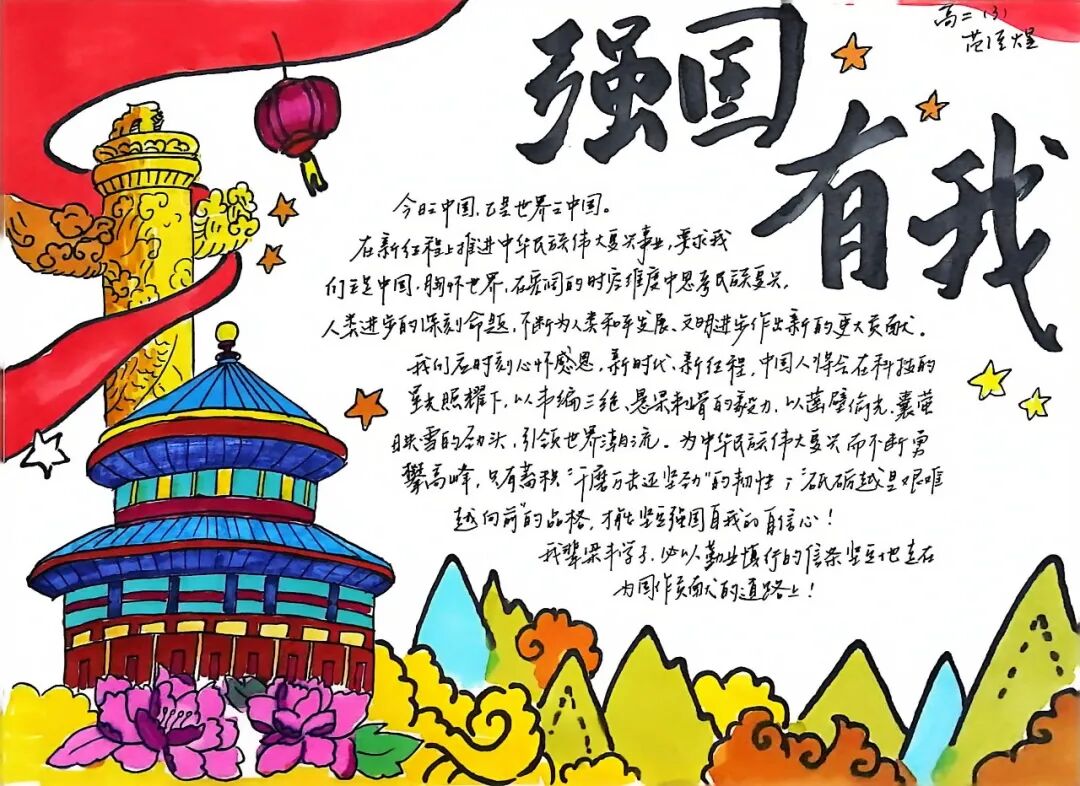 高二(3)
范
强国
有我
今日之中国，已是世界之中国。
在新征程上推进中华民族伟大复兴事业，要求我
们立足中国，胸怀世界，在宏阔的时空维度中思考民族复兴，
人类进步的深刻命题，不断为人类和平发展、文明进步作出新的更大贡献。
我们应时刻心怀感恩，新时代、新征程，中国人将会在科技的
星光照耀下，以韦编三绝、悬梁刺骨的毅力，以凿壁偷光、囊萤
映雪的劲头，引领世界潮流。为中华民族伟大复兴而不断勇
攀高峰，只有蓄积“千磨万击还坚劲”的韧性；砥砺越是艰难
越向前”的品格，才能坚定强国有我的自信心！
我辈梁丰学子，必以勤业慎行的信条坚定地走在
为国作贡献的道路上！